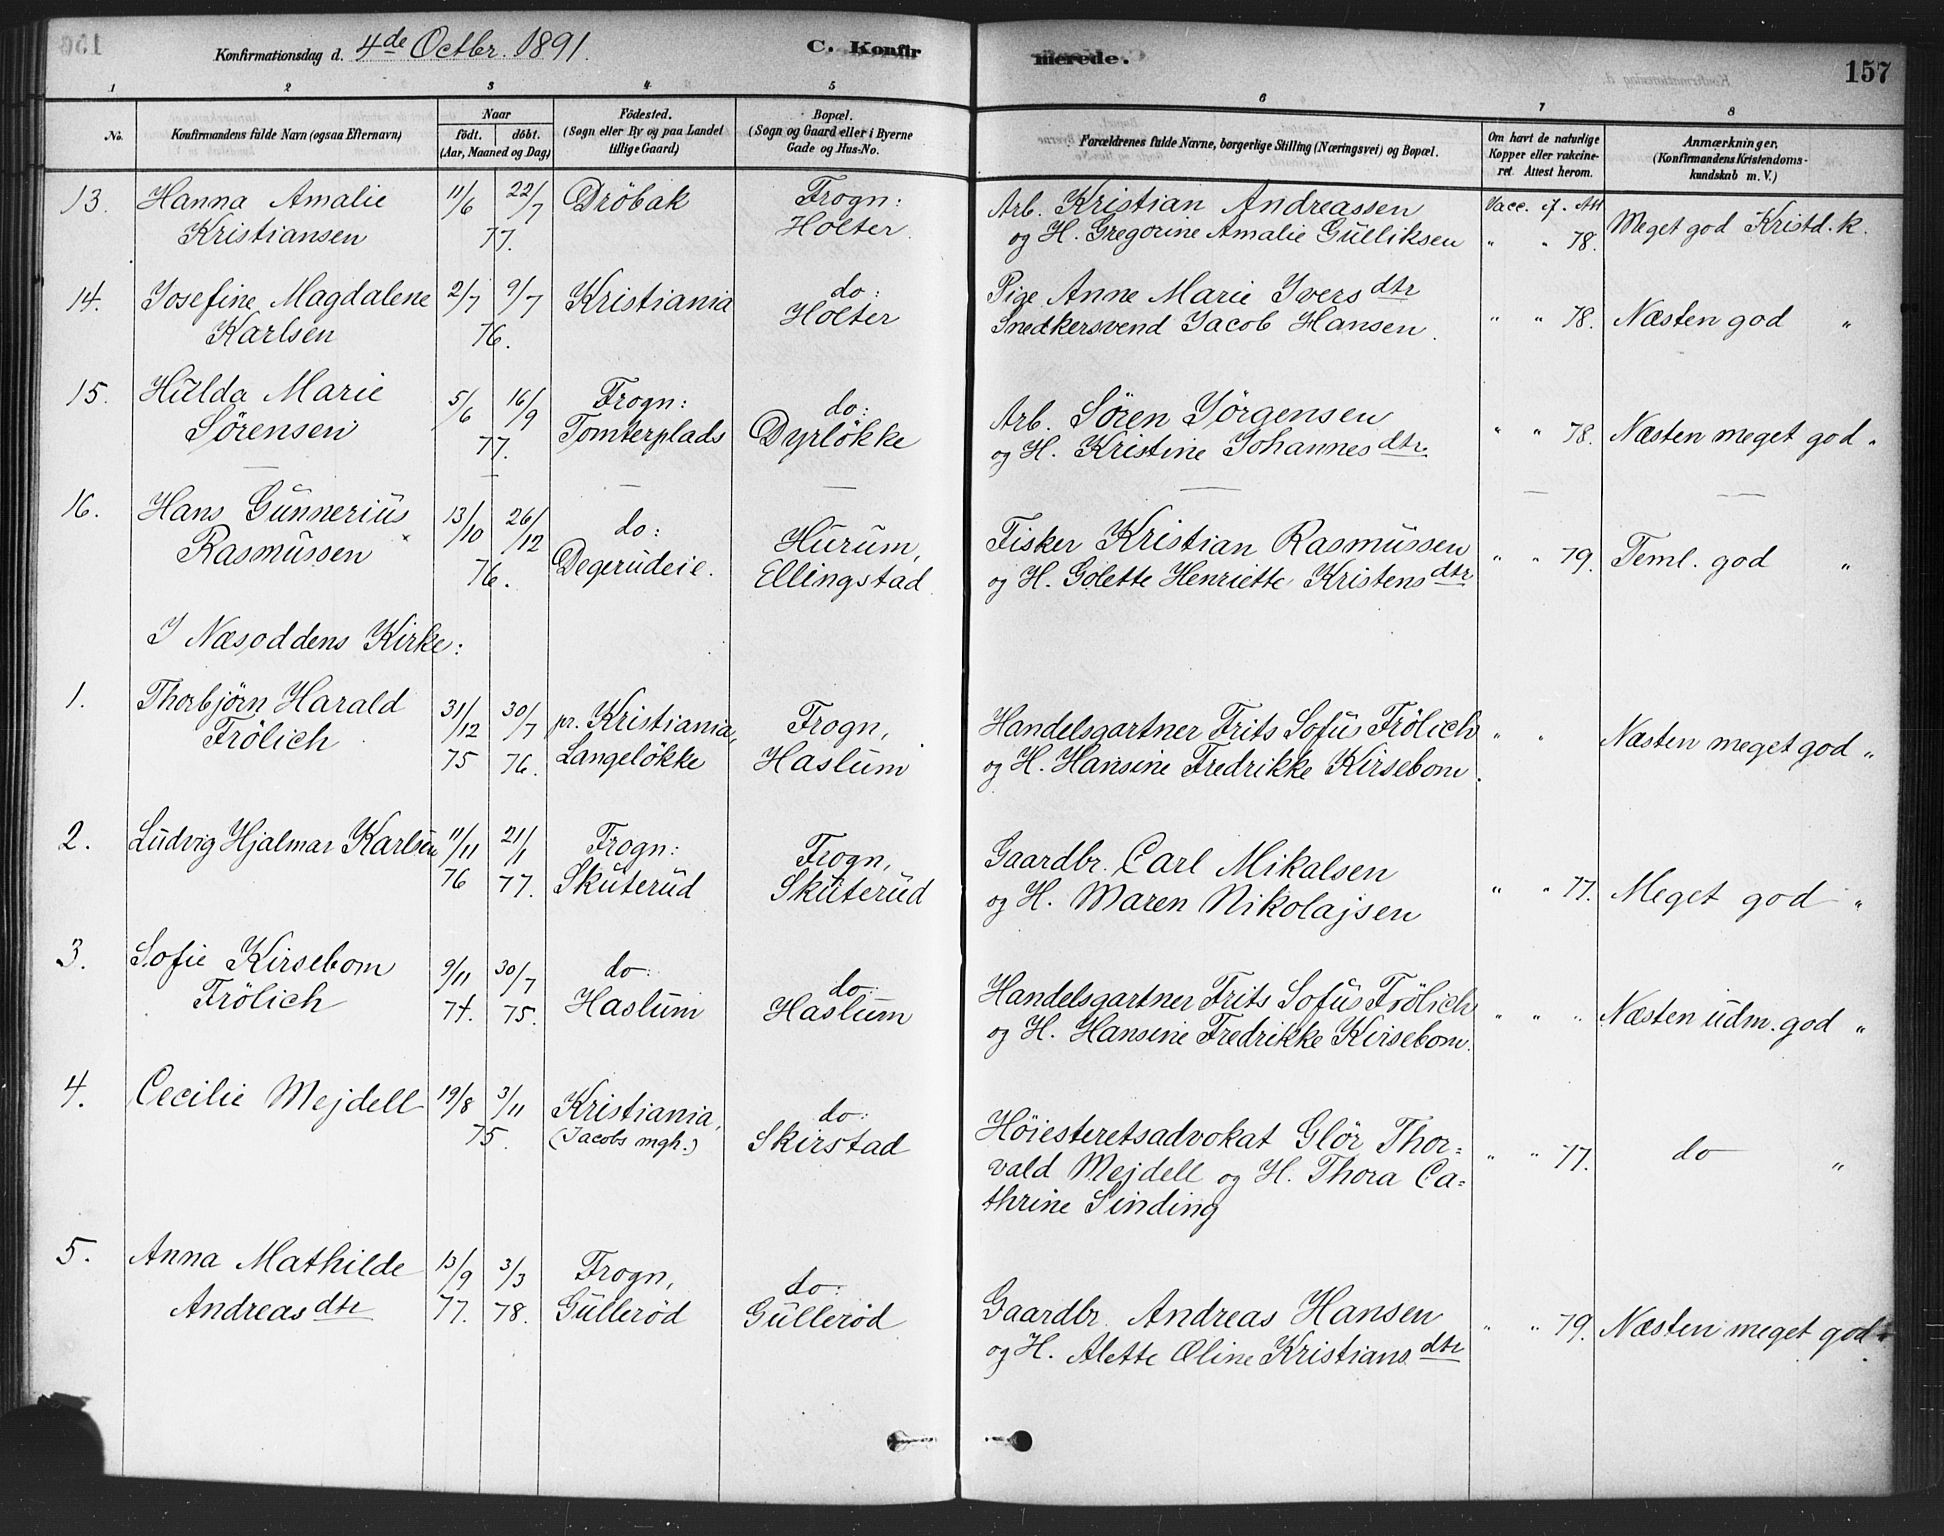 Konfirmationsdag d. 4de Octbr. 1891. C. Konfirmerede. 157
1 2 3 4 5 6 7 8
No. Konfirmandens fulde Navn (ogsaa Efternavn) Naar födt. döbt. (Aar, Maaned og Dag) Födested. (Sogn eller By og paa Landet tillige Gaard) Bopæl. (Sogn og Gaard eller i Byerne Gade og Hus-No. Forældrenes fulde Navne, borgerlige Stilling (Næringsvei) og Bopæl. Om havt de naturlige Kopper eller vakcineret. Attest herom. Anmærkninger. (Konfirmandens Kristendomskundskab m. V.)
13. Hanna Amalie 11/6 22/7 Dröbak Frogn: Arb. Kristian Andreassen Vacc. if. Att
Kristiansen 77. Holter. og H. Gregorine Amalie Gulliksen " " 78. Meget god Kristd. k.
14. Josefine Magdalene 2/7 9/7 Kristiania do: Pige Anne Marie Iversdtr
Karlsen 76. Holter Snedkersvend Jacob Hansen. " " 78. Næsten god "
15. Hulda Marie 5/6 16/9 Frogn: do: Arb. Sören Jörgensen
Sörensen 77. Tomterplads Dyrlökke og H. Kristine Johannesdtr. " " 78. Næsten meget god "
16. Hans Gunnerius 13/10 26/12 do: Hurum, Fisker Kristian Rasmussen
Rasmussen 76. Degerudeie. Ellingstad og H. Golette Henriette Kristensdtr " " 79. Teml. god "
I Næsoddens Kirke:
1. Thorbjörn Harald 31/12 30/7 pr. Kristiania, Frogn, Handelsgartner Frits Sofus Frölich " "
Frölich 75 76. Langelökke Haslum og H. Hansine Fredrikke Kirsebom. Næsten meget god "
2. Ludvig Hjalmar Karlsen 11/11 21/1 Frogn: Frogn, Gaardbr. Carl Mikalsen
76 77. Skuterud Skuterud og H. Maren Nikolajsen " " 77. Meget god "
3. Sofie Kirsebom 9/11 30/7 do: do: Handelsgartner Frits Sofus Frölich
Frölich 74. 75. Haslum Haslum og H. Hansine Fredrikke Kirsebom. " " " Næsten udm. god "
4. Cecilie Mejdell 19/8 3/11 Kristiania, do: Höiesteretsadvokat Glör Thor=
75. (Jacobs mgh.) Skirstad vald Mejdell og H. Thora Ca= " " 77. do "
thrine Sinding
5. Anna Mathilde 13/9 3/3 Frogn, do: Gaardbr. Andreas Hansen
Andreasdtr 77. 78. Gulleröd Gulleröd og H. Alette Oline Kristiansdtr " " 79. Næsten meget god "